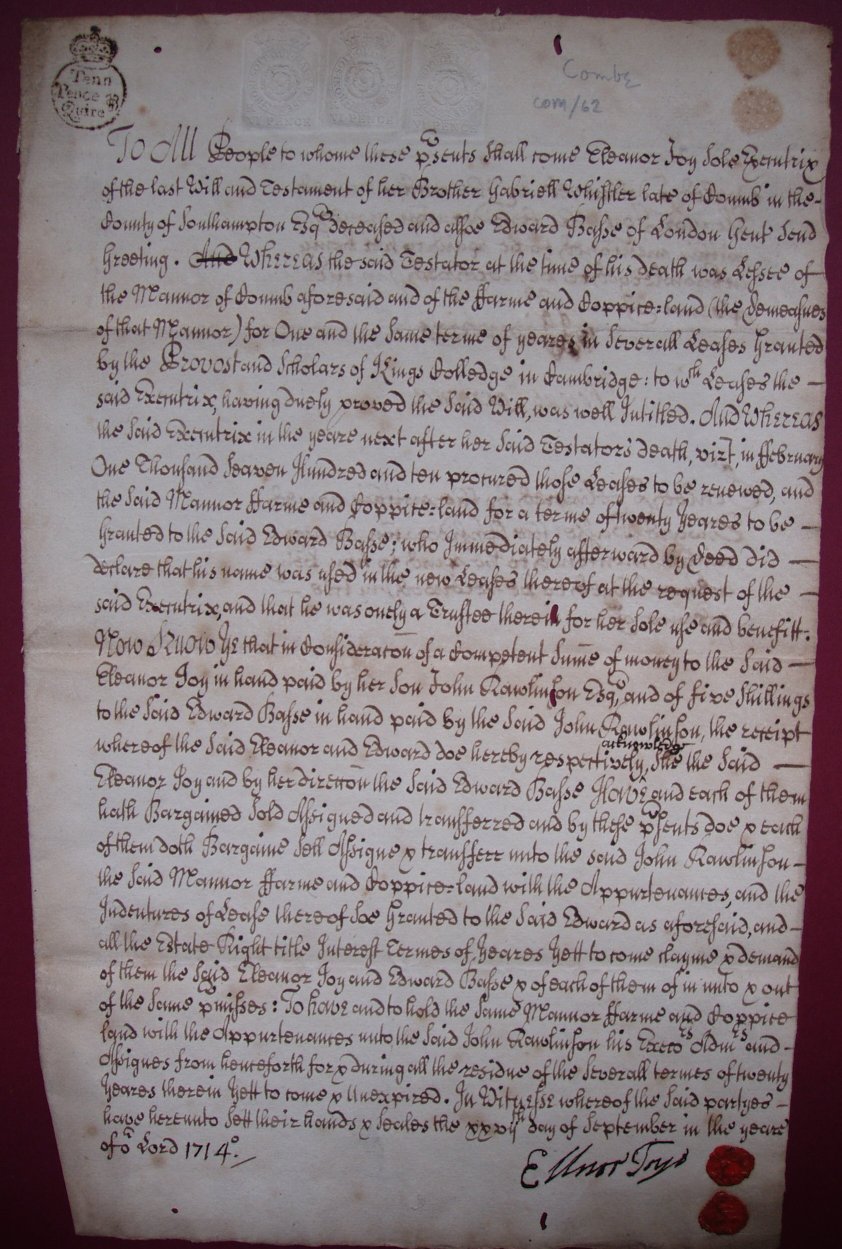 Tenn
Pence p
Quire
Combe
COM/62
To All People to whome these p'sents shall come Eleanor Joy Sole Executrix
of the last Will and Testament of her Brother Gabriell Whistler late of Comb in the
County of Southampton Esqr deceased and allsoe Edward Basse of London Gent Send
Greeting. And Whereas the said Testator at the time of his death was Lessee of
the Mannor of Comb aforesaid and of the ffarme and Coppice-land (the Demeasnes
of that Mannor) for One and the same terme of yeares in Severall Leases Granted
by the Provost and Scholars of Kings Colledge in Cambridge: to wch Leases the
said Executrix, having duely proved the said Will, was well Intitled. And Whereas
the said Executrix in the yeare next after her said Testators death, vizt, in ffebruary
One Thousand Seaven Hundred and ten procured those Leases to be renewed, and
the said Mannor ffarme and Coppice-land for a terme of twenty Yeares to be
Granted to the said Edward Basse; who Immediately afterward by Deed did
declare that his name was used in the new Leases thereof at the request of the
said Executrix, and that he was onely a Trustee therein for her Sole use and benefitt.
Now Know Ye that in Consideracon of a Competent Sume of money to the said
Eleanor Joy in hand paid by her Son John Rawlinson Esqr, and of five Shillings
to the said Edward Basse in hand paid by the said John Rawlinson, the receipt
whereof the said Eleanor and Edward doe hereby respectively acknowledge, She the said
Eleanor Joy and by her direccon the said Edward Basse Have and each of them
hath Bargained Sold Assigned and transferred and by these p'sents doe & each
of them doth Bargaine Sell Assigne & transferr unto the said John Rawlinson
the said Mannor ffarme and Coppice-land with the Appurtenances, and the
Indentures of Lease thereof soe Granted to the said Edward as aforesaid, and
all the Estate Right title Interest Termes of Yeares Yett to come clayme & demand
of them the said Eleanor Joy and Edward Basse & of each of them of in unto & out
of the same p'misses: To have and to hold the same Mannor ffarme and Coppice
land with the Appurtenances unto the said John Rawlinson his Execrs Admrs and
Assignes from henceforth for & during all the residue of the Severall termes of twenty
Yeares therein Yett to come & Unexpired. In Witnesse whereof the said partyes
have hereunto Sett their hands & Seales the xxviith day of September in the yeare
of or Lord 1714.
Ellnor Joye